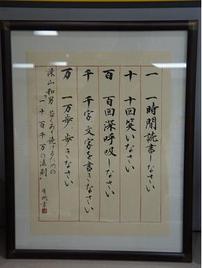 一 一時間読書しなさい
十 十回笑いなさい
百 百回深呼吸しなさい
千 千字文字を書きなさい
万 一万歩歩きなさい
山和男 ための
"一十百千万の法則"